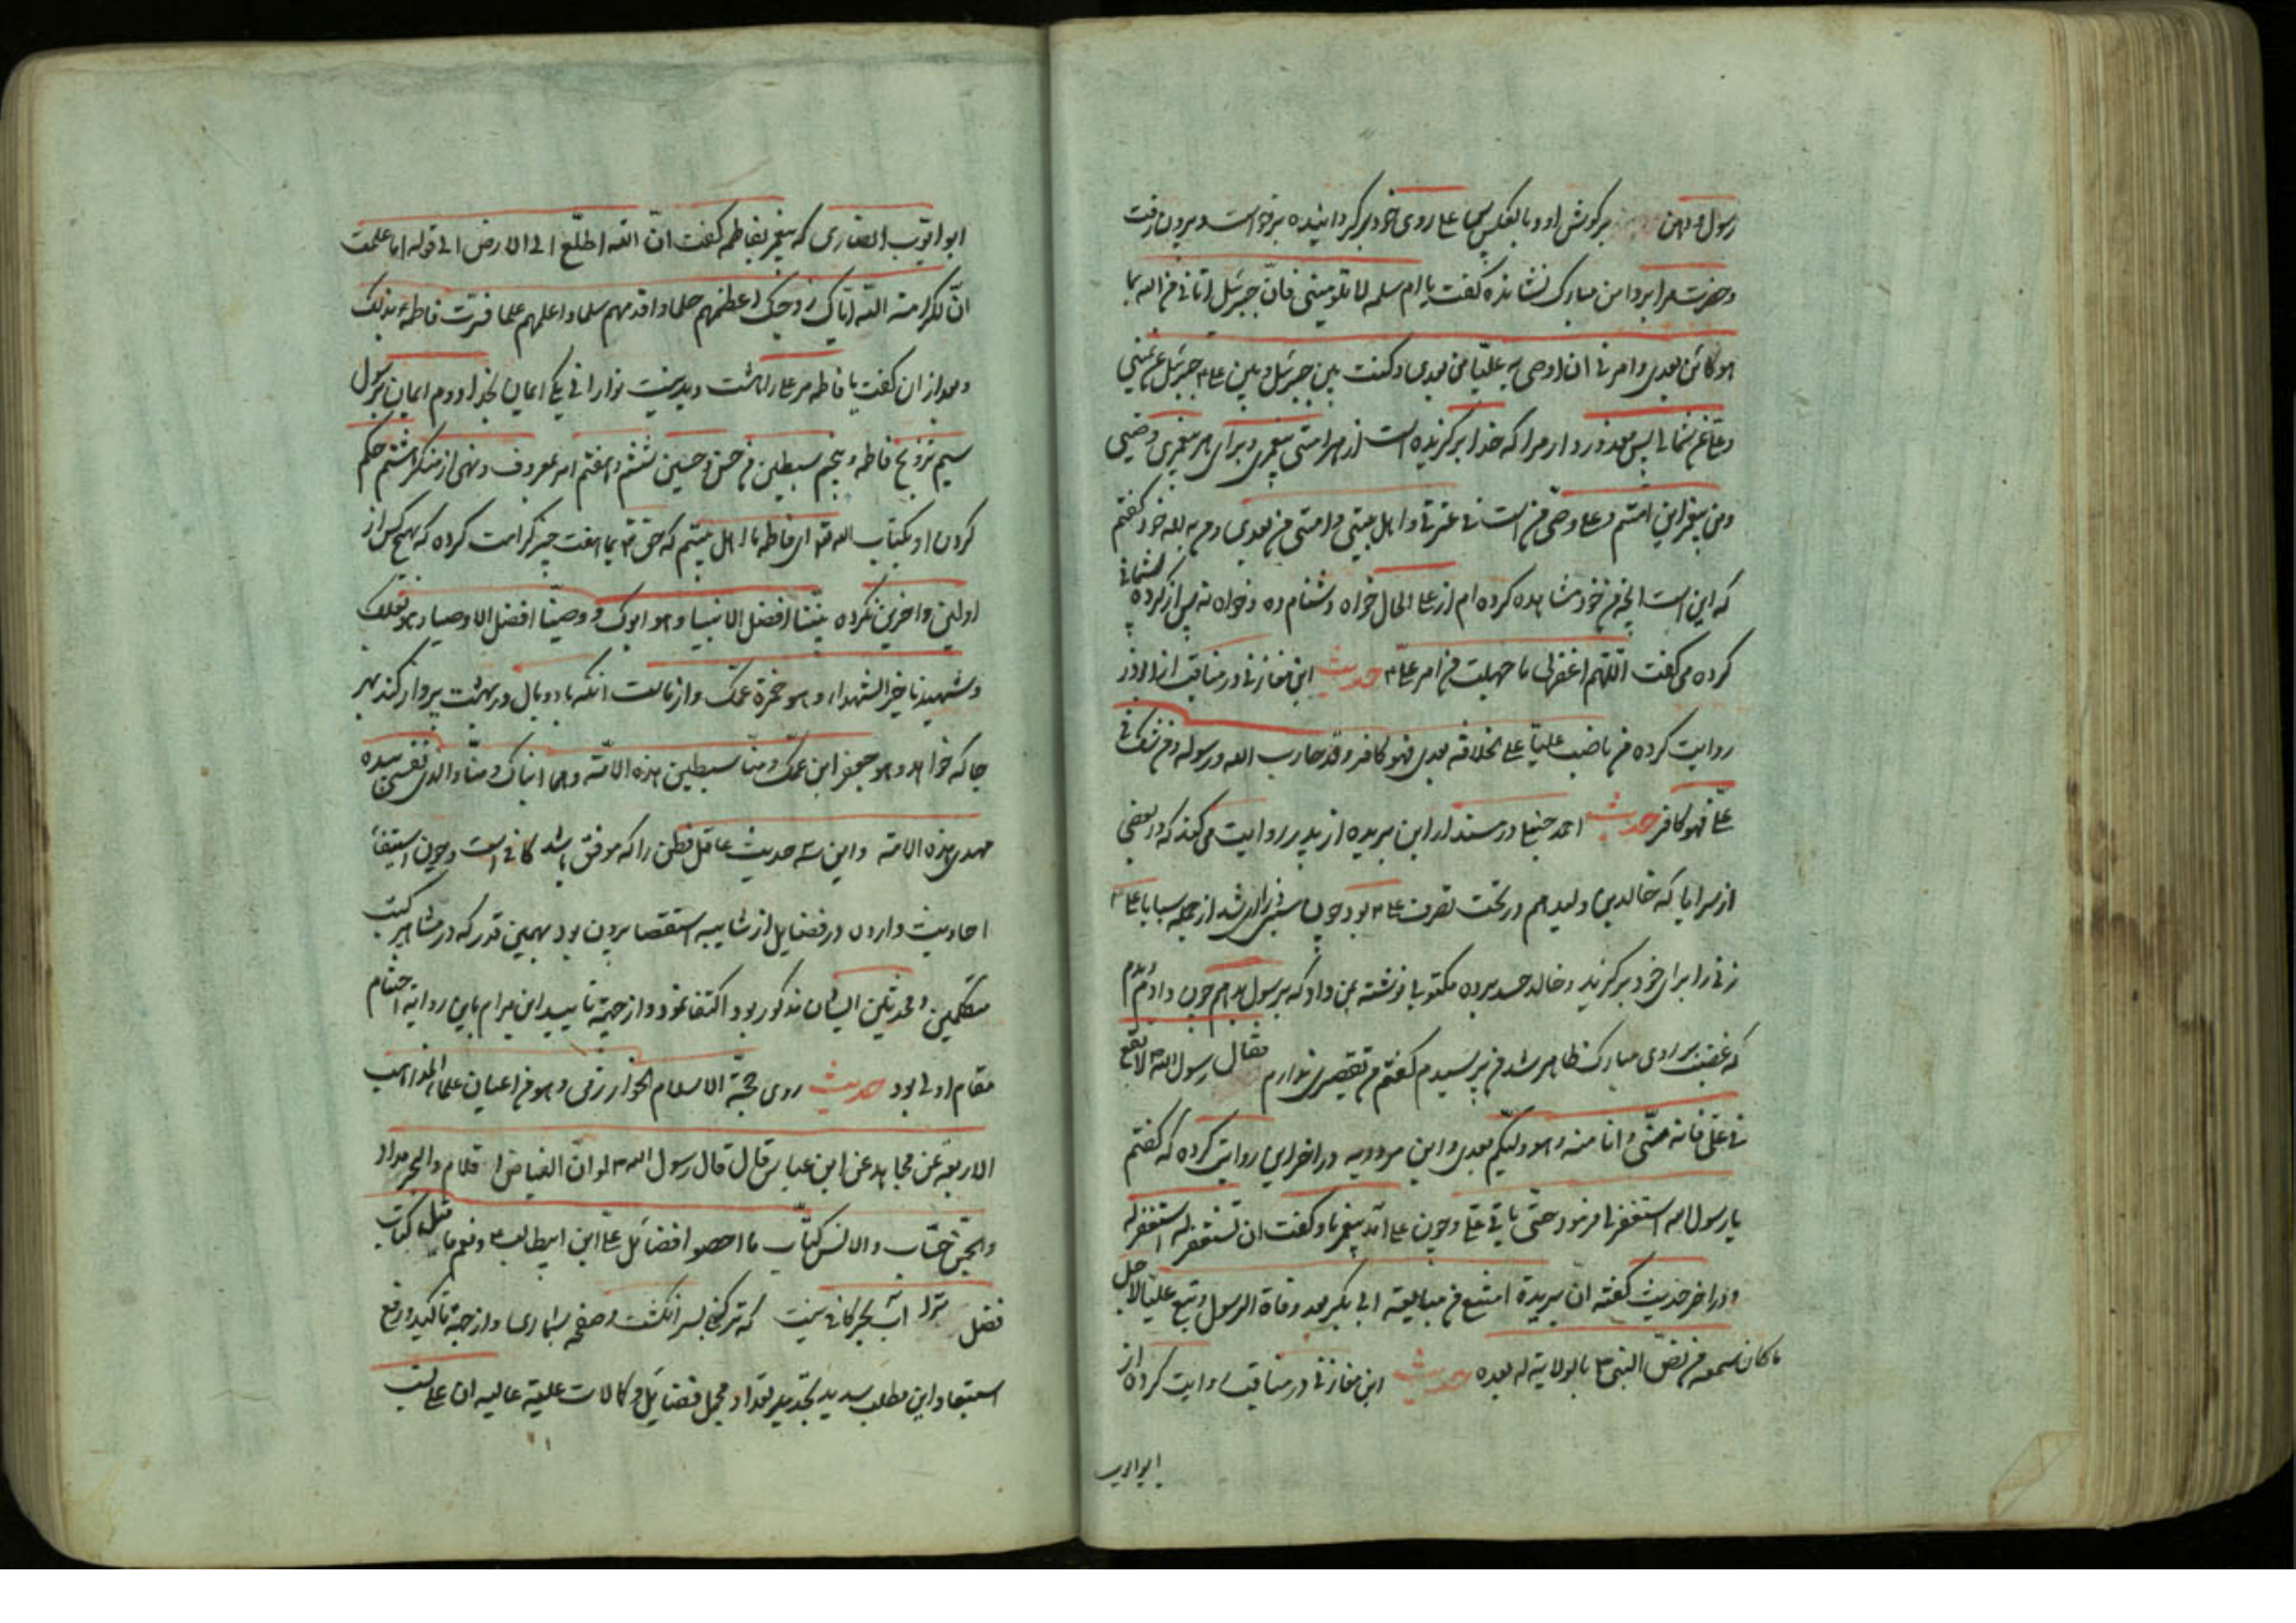 رسول و دهن بر گوش او و بالعکس علی روی خود بر گردانیده برخواست و بیرون رفت
و حضرت مرا بر دامن مبارک نشانده گفت یا ام سلمه لا تلومینی فان جبرئیل اتانی من الله بما
هو کائن بعدی و امرنی ان اوصی به علیا من بعدی و کنت بین جبرئیل و بین علی جبرئیل عن یمینی
و علی عن شمالی پس معذور دار مرا که خدا برگزیده است از هر امتی پیغمبری و برای هر پیغمبری وصیی
و من پیغمبر این امتم و علی وصی من است فی عترتی و اهل بیتی و امتی من بعدی
که این است آنچه من خود مشاهده کرده ام از علی الحال خواه دشنام ده و خواه نه پس از کرده
کرده می گفت اللهم اغفر لی ما جهلت من امر علی حدیث ابن مغازلی در مناقب از ابوذر
روایت کرده من ناصب علیا علی الخلافة بعدی فهو کافر و قد حارب الله و رسوله و من شک فی
علی فهو کافر حدیث احمد حنبل در مسند از ابن بریده از پدر روایت می کند که در بعضی
از سرایا که خالد بن ولید هم در تحت تصرف علی بود چون از جمله سبایا علی
زنی را برای خود برگزید و خالد حسد برده مکتوبی نوشته بمن داد که برسول برم چون دادم دیدم
که غضب بر روی مبارک ظاهر شد من ترسیدم گفتم من تقصیری ندارم فقال رسول الله لا تقع
فی علی فانه منی و انا منه و هو ولیکم بعدی و ابن مردویه در آخر این روایت کرده که گفتم
یا رسول الله استغفر لی فرمود حتی یاتی علی و چون علی آمد پیغمبر باو گفت ان تستغفر له استغفر له
و در آخر حدیث گفته ان بریدة امتنع من مبایعة ابی بکر بعد وفاة الرسول و تبع علیا لاجل
ما کان سمعه من نص النبی بالولایة له بعده حدیث ابن مغازلی در مناقب روایت کرده از
ابو ایوب
ابو ایوب انصاری که پیغمبر بفاطمه گفت ان الله اطلع الی الارض الی قوله اما علمت
ان لکرامة الله ایاک زوجک اعظمهم حلما و اقدمهم سلما و اعلمهم علما فسرت فاطمة بذلک
و بعد از آن گفت یا فاطمه مر علی راست یکی ایمان بخدا و دوم ایمان برسول
سیم تزویج فاطمه و پنجم سبطین من حسن و حسین ششم و هفتم امر بمعروف و نهی از منکر هشتم حکم
کردن او بکتاب الله ای فاطمه ما اهل بیتیم که حق بما هفت چیز کرامت کرده که هیچ کس از
اولین و آخرین نکرده نبینا افضل الانبیا و هو ابوک و وصینا افضل الاوصیا و هو بعلک
و شهیدنا خیر الشهداء و هو حمزة عمک و از ماست آنکه با دو بال در بهشت پرواز کند بهر
جا که خواهد و هو جعفر ابن عمک و منا سبطین هذه الامة و هما ابناک و منا والذی نفسی بیده
مهدی هذه الامة و این سه حدیث عاقل فطن را که موفق باشد کافی است و چون استیفاء
احادیث وارده در فضایل از شایبه استقصا بیرون بود بهمین قدر که در مشاهیر کتب
متکلمین و محدثین ایشان مذکور بود اکتفا نمود و از جهة تایید این مرام باین روایه اختتام
مقام اولی بود حدیث روی حجة الاسلام الخوارزمی و هو من اعیان علماء المذاهب
الاربعة عن مجاهد عن ابن عباس قال قال رسول الله لو ان الغیاض اقلام و البحر مداد
و الجن حساب و الانس کتاب ما احصوا فضائل علی ابن ابیطالب و نعم ما قیل کتاب
فضل ترا آب بحر کافی نیست که تر کنی سر انگشت و صفحه بشماری و از جهة تاکید و رفع
استبعاد این مطلب سدید بتجدید تعداد مجمل فضایل و کمالات علیه عالیه آن عالی نسب